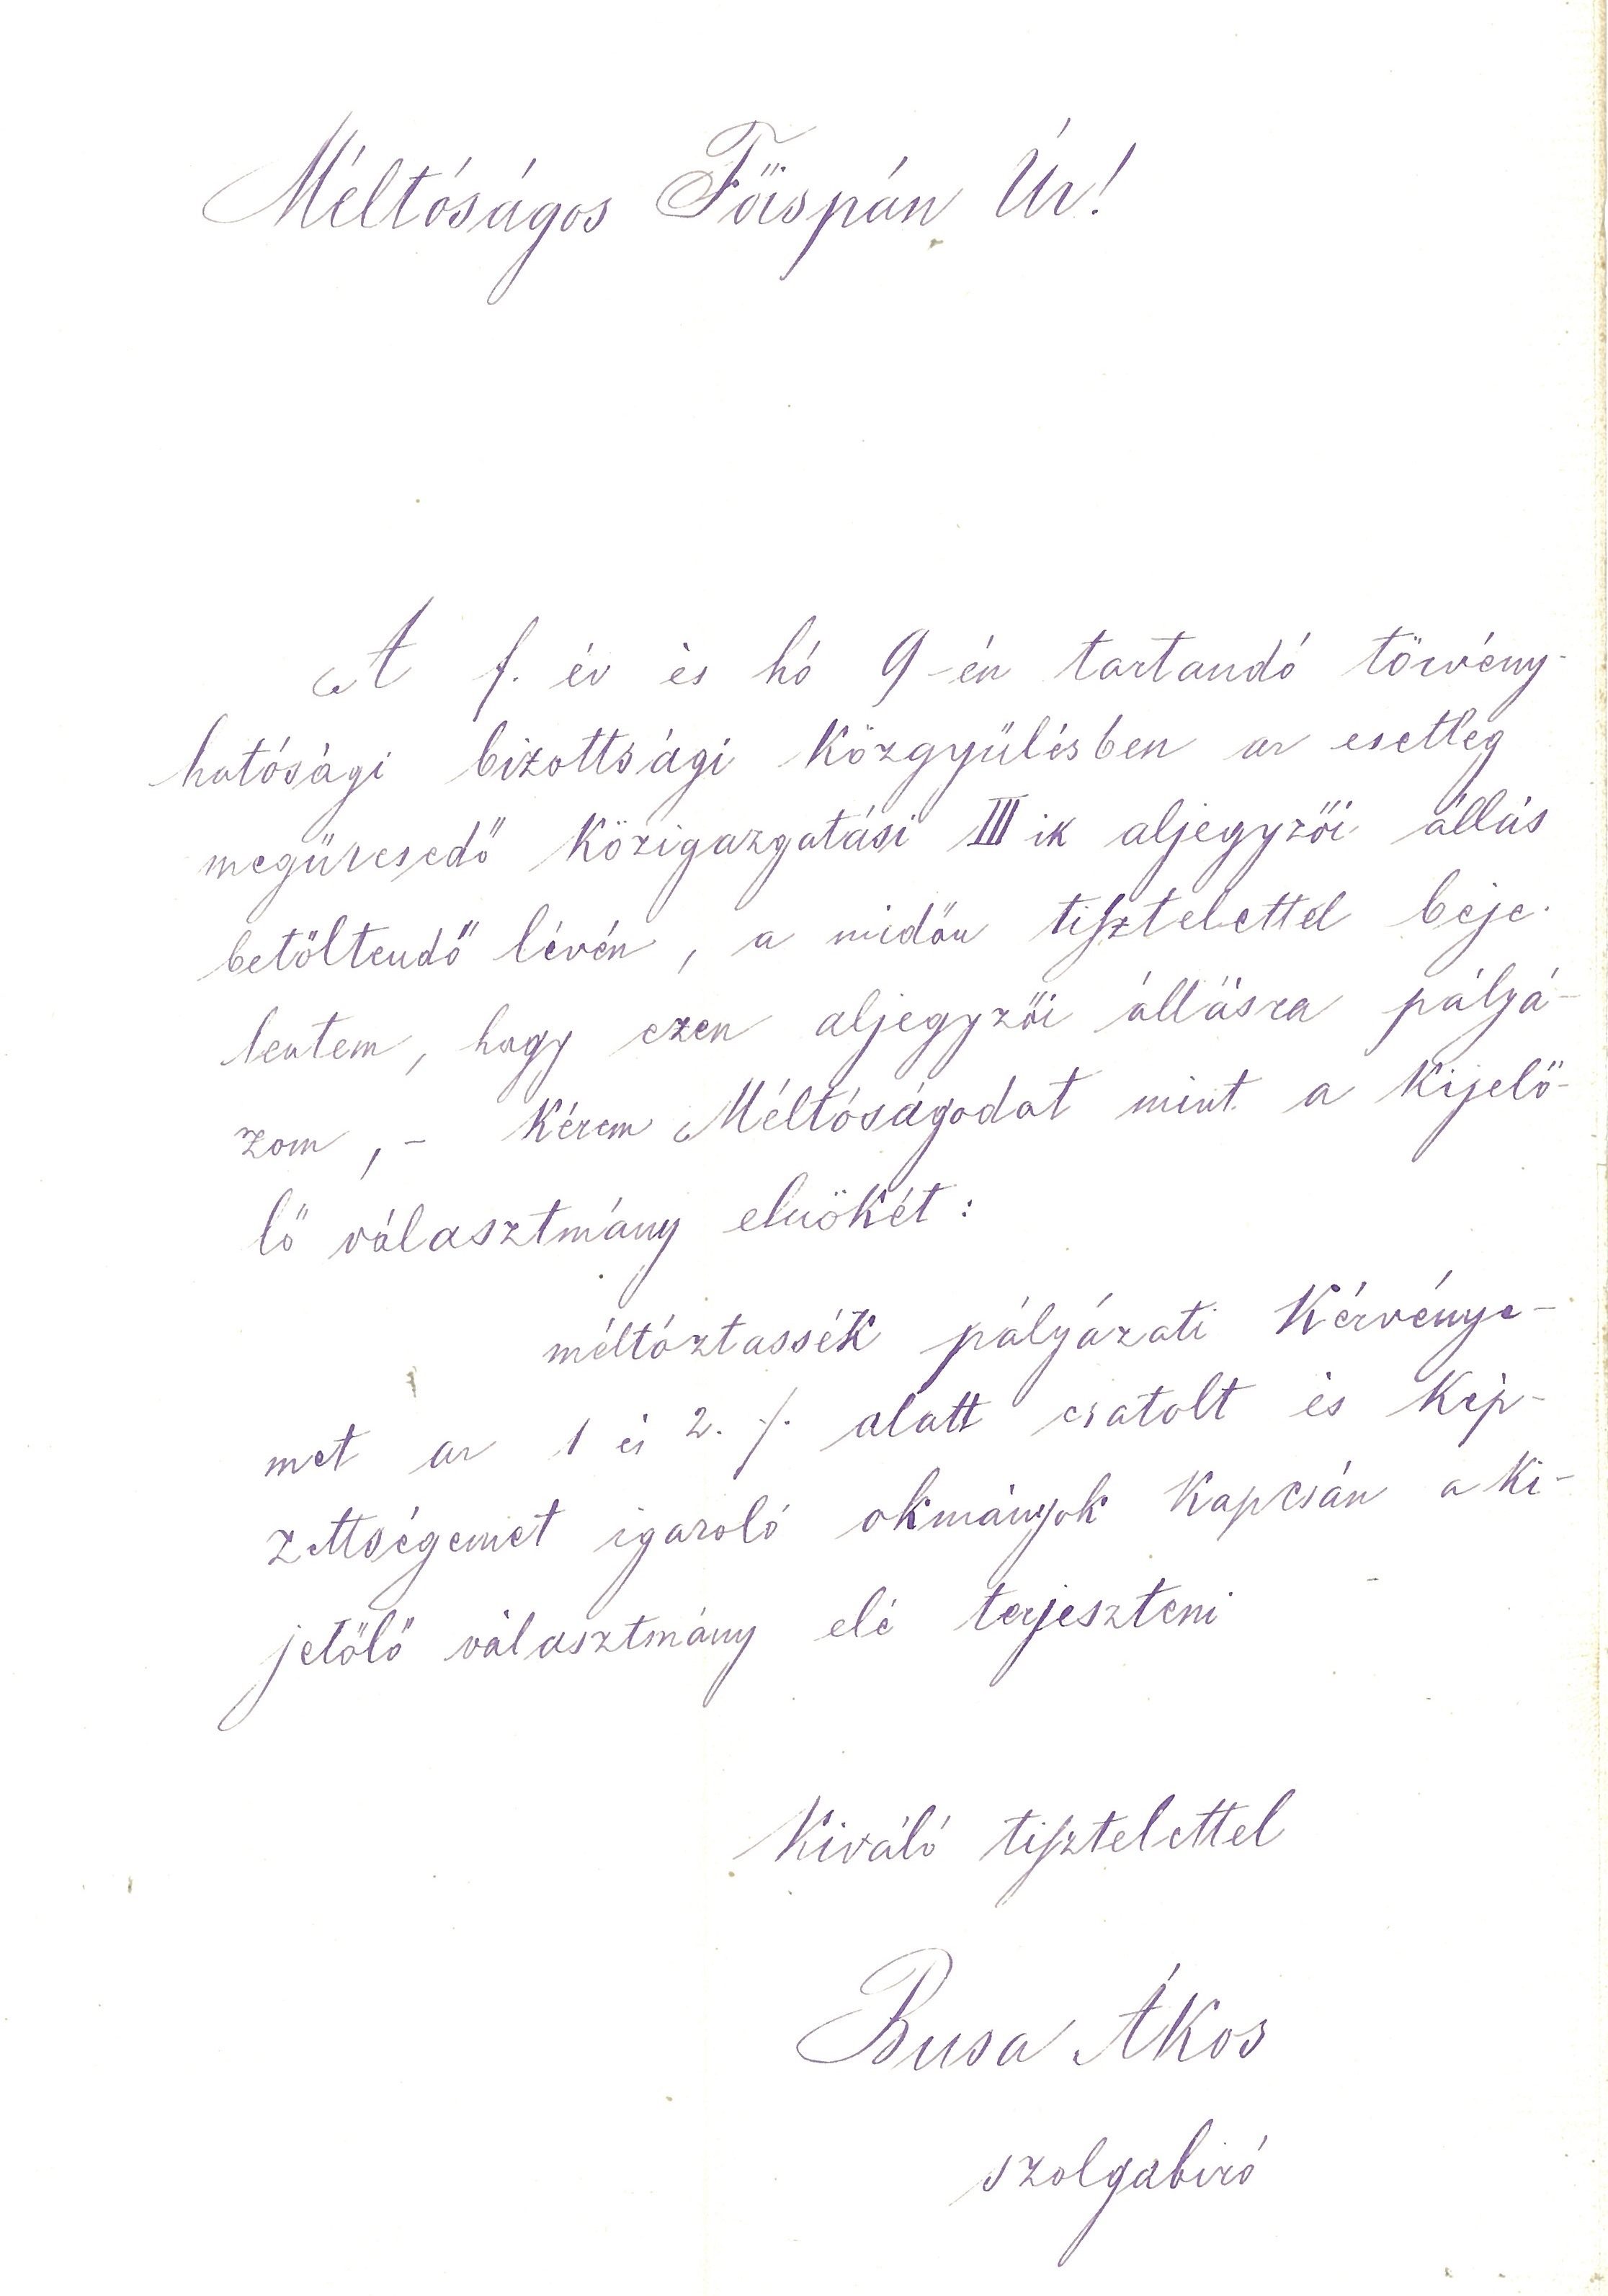 Méltóságos Főispán Úr!
A f. év és hó 9-én tartandó törvény-
hatósági bizottsági közgyülésben az esetleg
megüresedő közigazgatási III ik aljegyzői állás
betöltendő lévén, a midőn tisztelettel beje-
lentem, hogy ezen aljegyzői állásra pályá-
zom, - kérem Méltóságodat mint a kijelö-
lő választmány elnökét:
méltóztassék pályázati kérvénye-
met az 1 és 2. ./. alatt csatolt és kép-
zettségemet igazoló okmányok kapcsán a ki-
jelölő választmány elé terjeszteni
Kiváló tisztelettel
Busa Ákos
szolgabiró